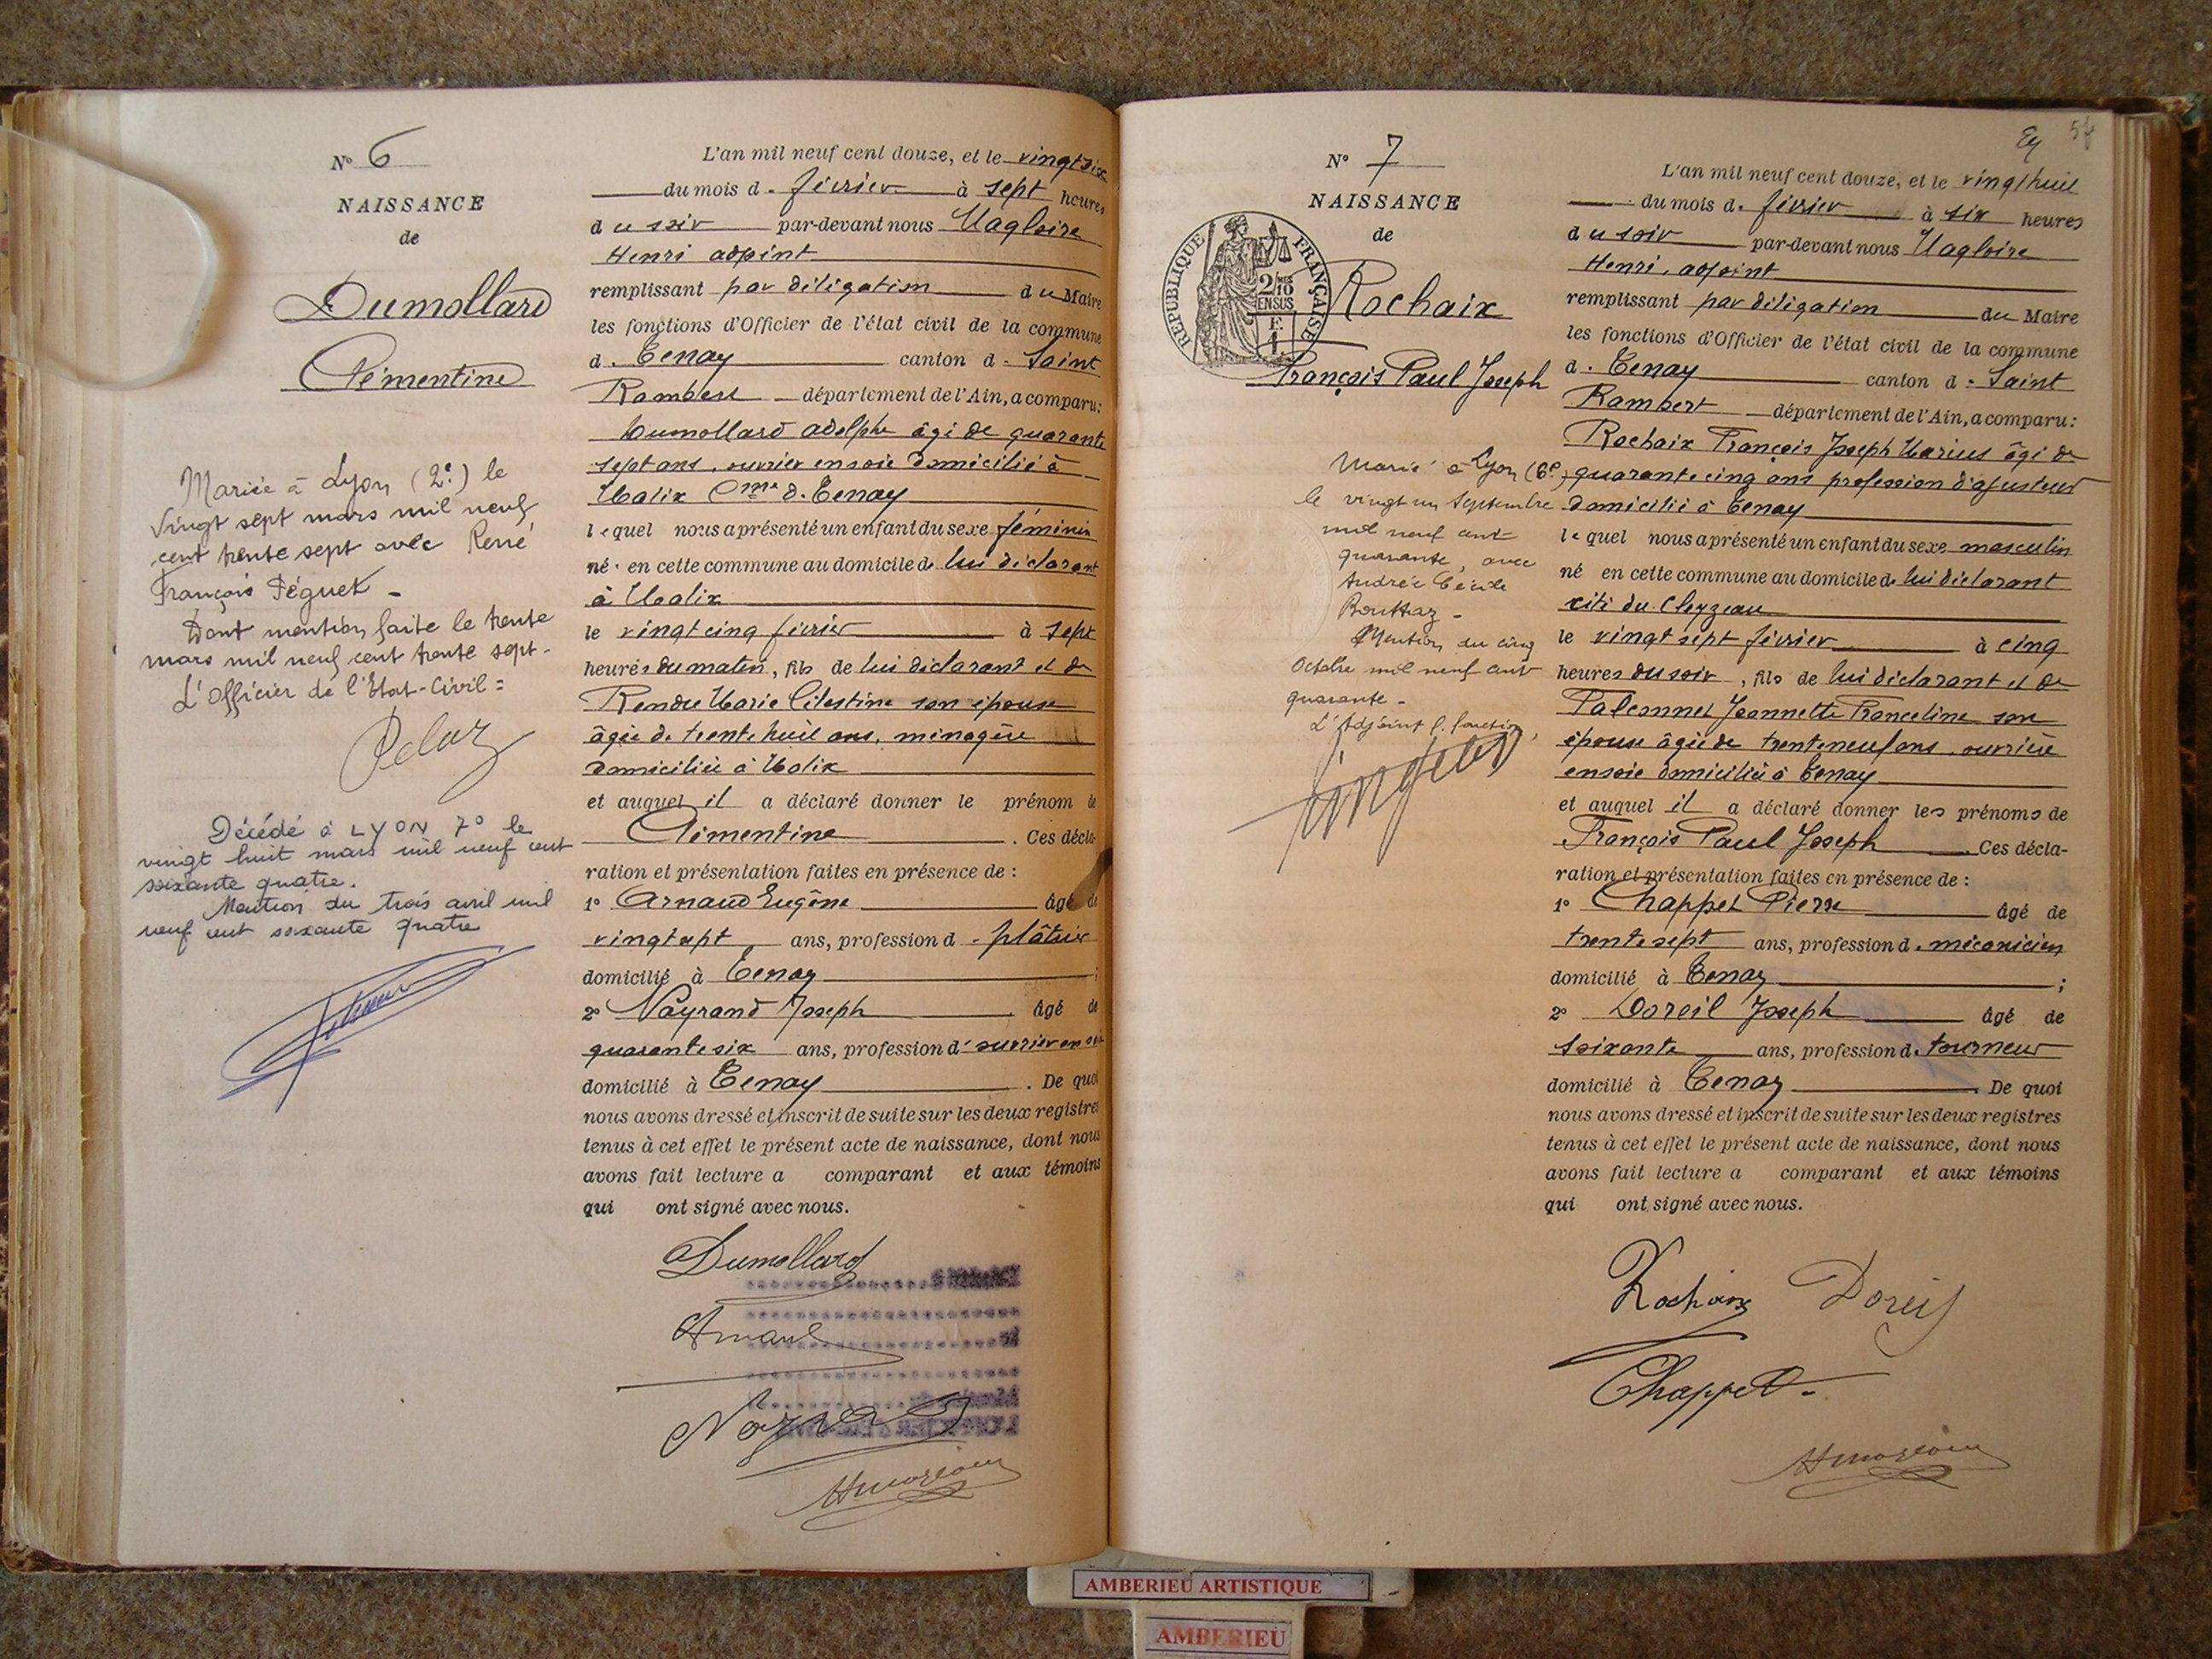 N° 6
NAISSANCE
de
Dumollard
Clémentine
Mariée à Lyon (2e) le
vingt sept mars mil neuf
cent trente sept avec René
François Péguet -
Dont mention faite le trente
mars mil neuf cent trente sept -
L'officier de l'Etat-Civil =
Décédé à LYON 7° le
vingt huit mars mil neuf cent
soixante quatre.
Mention du trois avril mil
neuf cent soixante quatre
L'an mil neuf cent douze, et le vingt six
du mois d. février à sept heures
du soir par-devant nous Magloire
Henri adjoint
remplissant par délégation du Maire
les fonctions d'Officier de l'état civil de la commune
d. Tenay canton d - Saint
Rambert département de l'Ain, a comparu:
Dumollard Adolphe âgé de quarante
sept ans, ouvrier en soie domicilié à
Malix Cme d. Tenay
lequel nous a présenté un enfant du sexe féminin
né en cette commune au domicile de lui déclarant
à Malix
le vingt cinq février à sept
heures du matin, fils de lui déclarant et de
Marie Célestine son épouse
âgée de trente huit ans, ménagère
domiciliée à Malix
et auquel il a déclaré donner le prénom de
Clémentine. Ces décla-
ration et présentation faites en présence de :
1° Arnaud Eugène âgé de
vingt sept ans, profession d - plâtrier
domicilié à Tenay ;
2° Nayrand Joseph âgé de
quarante six ans, profession d' ouvrier en soie
domicilié à Tenay. De quoi
nous avons dressé et inscrit de suite sur les deux registres
tenus à cet effet le présent acte de naissance, dont nous
avons fait lecture a comparant et aux témoins
qui ont signé avec nous.
Dumollard
Arnaud
57
N° 7
NAISSANCE
de
RÉPUBLIQUE FRANÇAISE
2/10 EN SUS
Rochaix
François Paul Joseph
Marié à Lyon (6e)
le vingt un Septembre
mil neuf cent
quarante, avec
Andrée Cécile
Bouttaz -
Mention du cinq
Octobre mil neuf cent
quarante -
L'Adjoint
L'an mil neuf cent douze, et le vingt huit
du mois d. février à six heures
du soir par-devant nous Magloire
Henri, adjoint
remplissant par délégation du Maire
les fonctions d'Officier de l'état civil de la commune
d. Tenay canton d - Saint
Rambert département de l'Ain, a comparu:
Rochaix François Joseph Marius âgé de
quarante cinq ans profession d'ajusteur
domicilié à Tenay
lequel nous a présenté un enfant du sexe masculin
né en cette commune au domicile de lui déclarant
cité du Cleyzeau
le vingt sept février à cinq
heures du soir, fils de lui déclarant et de
Falconnet Jeannette Franceline son
épouse âgée de trente neuf ans, ouvrière
en soie domiciliée à Tenay
et auquel il a déclaré donner les prénoms de
François Paul Joseph. Ces décla-
ration et présentation faites en présence de :
1° Chappet Pierre âgé de
trente sept ans, profession d. mécanicien
domicilié à Tenay ;
2° Doreil Joseph âgé de
soixante ans, profession d. tourneur
domicilié à Tenay. De quoi
nous avons dressé et inscrit de suite sur les deux registres
tenus à cet effet le présent acte de naissance, dont nous
avons fait lecture a comparant et aux témoins
qui ont signé avec nous.
Rochaix Doreil
Chappet
AMBERIEU ARTISTIQUE
AMBERIEU